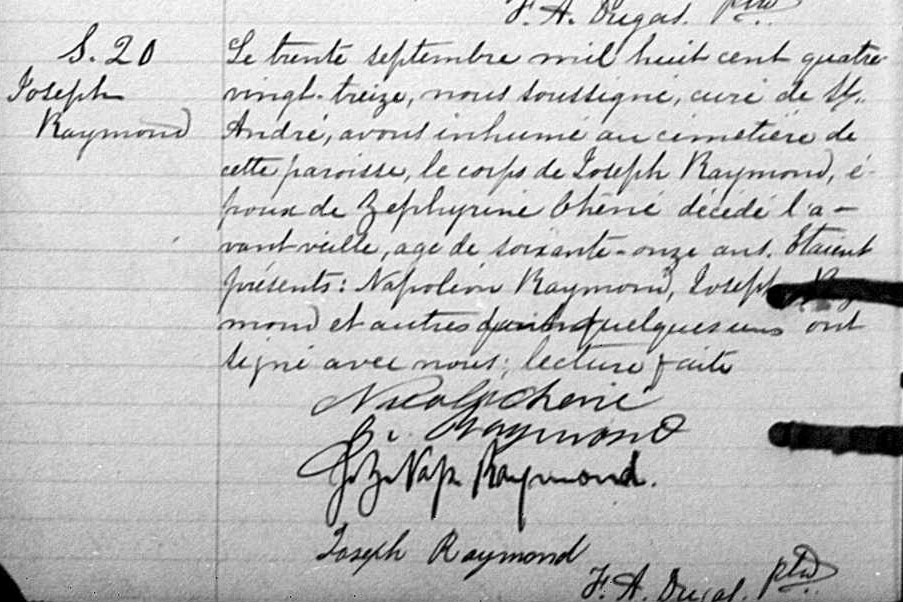 F. A. Dugas. ptre
S. 20
Joseph
Raymond
Le trente septembre mil huit cent quatre-
vingt-treize, nous soussigné, curé de St.
André, avons inhumé au cimetière de
cette paroisse, le corps de Joseph Raymond, é-
poux de Zéphyrine Chénié décédé l'a-
vant veille, age de soixante-onze ans. Etaient
présents: Napoléon Raymond, Joseph Ray
mond et autres quelques uns ont
signé avec nous; lecture faite
Chénié
Raymond
J. B. Nap. Raymond.
Joseph Raymond
F. A. Dugas. ptre